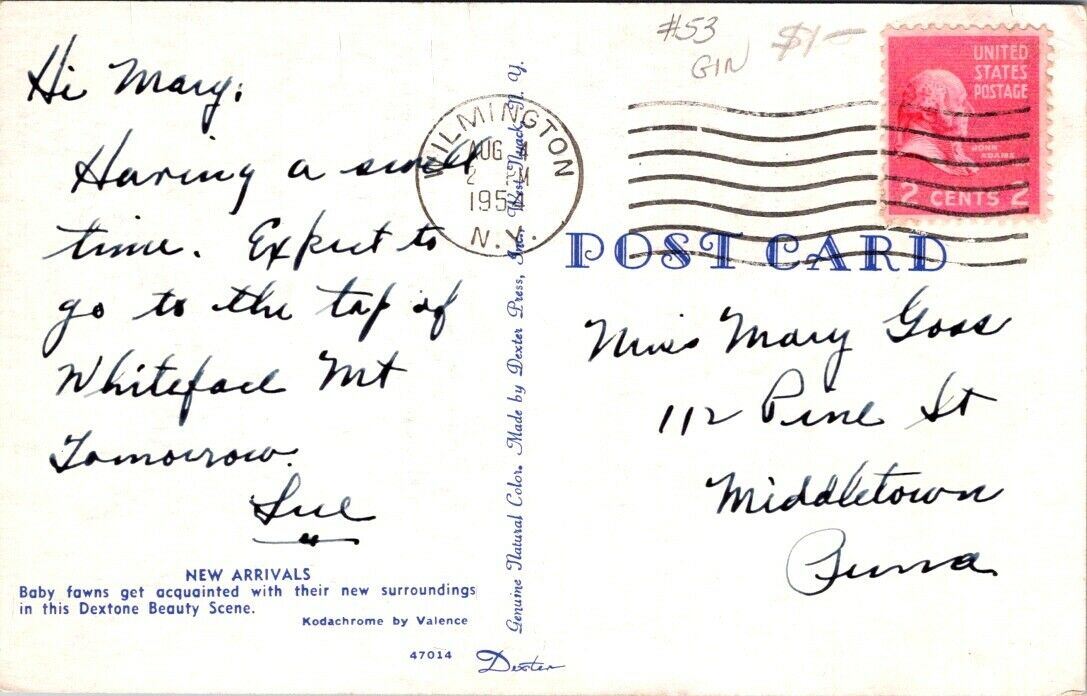 #53
GIN
$1—
Hi Mary;
Having a swell
time. Expect to
go to the top of
Whiteface Mt
Tomorrow.
Sue
NEW ARRIVALS
Baby fawns get acquainted with their new surroundings
in this Dextone Beauty Scene.
Kodachrome by Valence
47014
Dexter
Genuine Natural Color. Made by Dexter Press, Inc. West Nyack, N. Y.
WILMINGTON
AUG 4
2 PM
1954
N.Y.
UNITED
STATES
POSTAGE
JOHN
ADAMS
2 CENTS 2
POST CARD
Miss Mary Goss
112 Pine St
Middletown
Penna